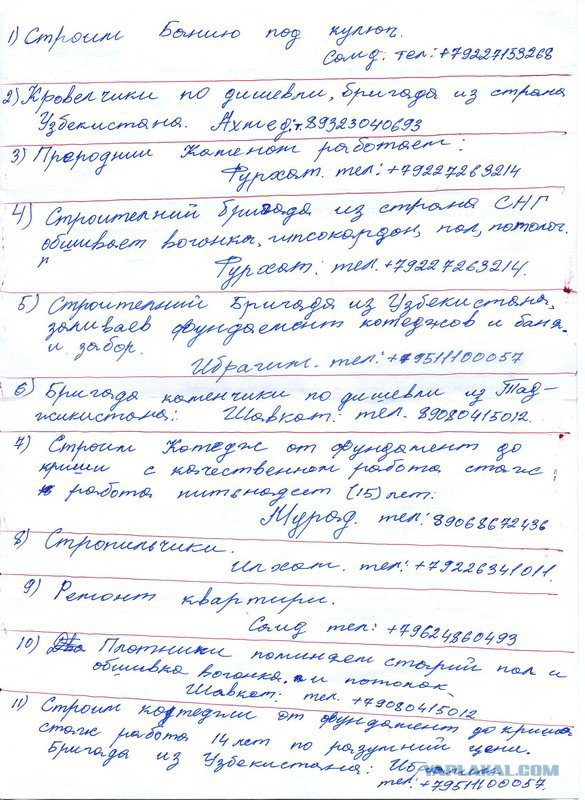 1) Строим Банию под кулюч.
Саид. тел: +79227153268
2) Кровелчики по дишевли, бригада из страна
Узбекистана. Ахмед: т. 89323040693
3) Прародний Каменот работаем:
Фурхат. тел: +79227263214
4) Строителний бригада из страна СНГ
обшивает вогонка, гипсокардон, пол, потолог.
Фурхат: тел. +79227263214.
5) Строителний Бригада из Узбекистана,
заливаев фундаемент котеджов и баня
и забор.
Ибрагим. тел: +79511100057
6) Бригада каменчики по дишевли из Тад-
жикистана: Шавкат: тел. 89080415012
7) Строим Котедж от фундамент до
криши с качественном работа стаж
работа питьнадсет (15) лет.
Мурад. тел: 89068672436
8) Стропильчики.
Илхат. тел: +79226341011.
9) Ремонт квартири.
Саид тел: +79624860493
10) Плотники поминяем старий пол и
обшивка вогонка, и потолок
Шавкат: тел. +79080415012
11) Строим коттеджи от фундамент до криша
стаж работа 14 лет по разумний цени.
Бригада из Узбекистана: Ибрагим
тел: +79511100057.
YAPLAKAL.COM